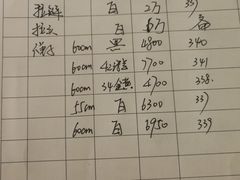 拉链 白 2万 337
拉头 白 6万 备
60cm 黑 4800 340
60cm 42 7700 341
60cm 34金黄 4700 338
55cm 白 6300 337
60cm 白 6950 339